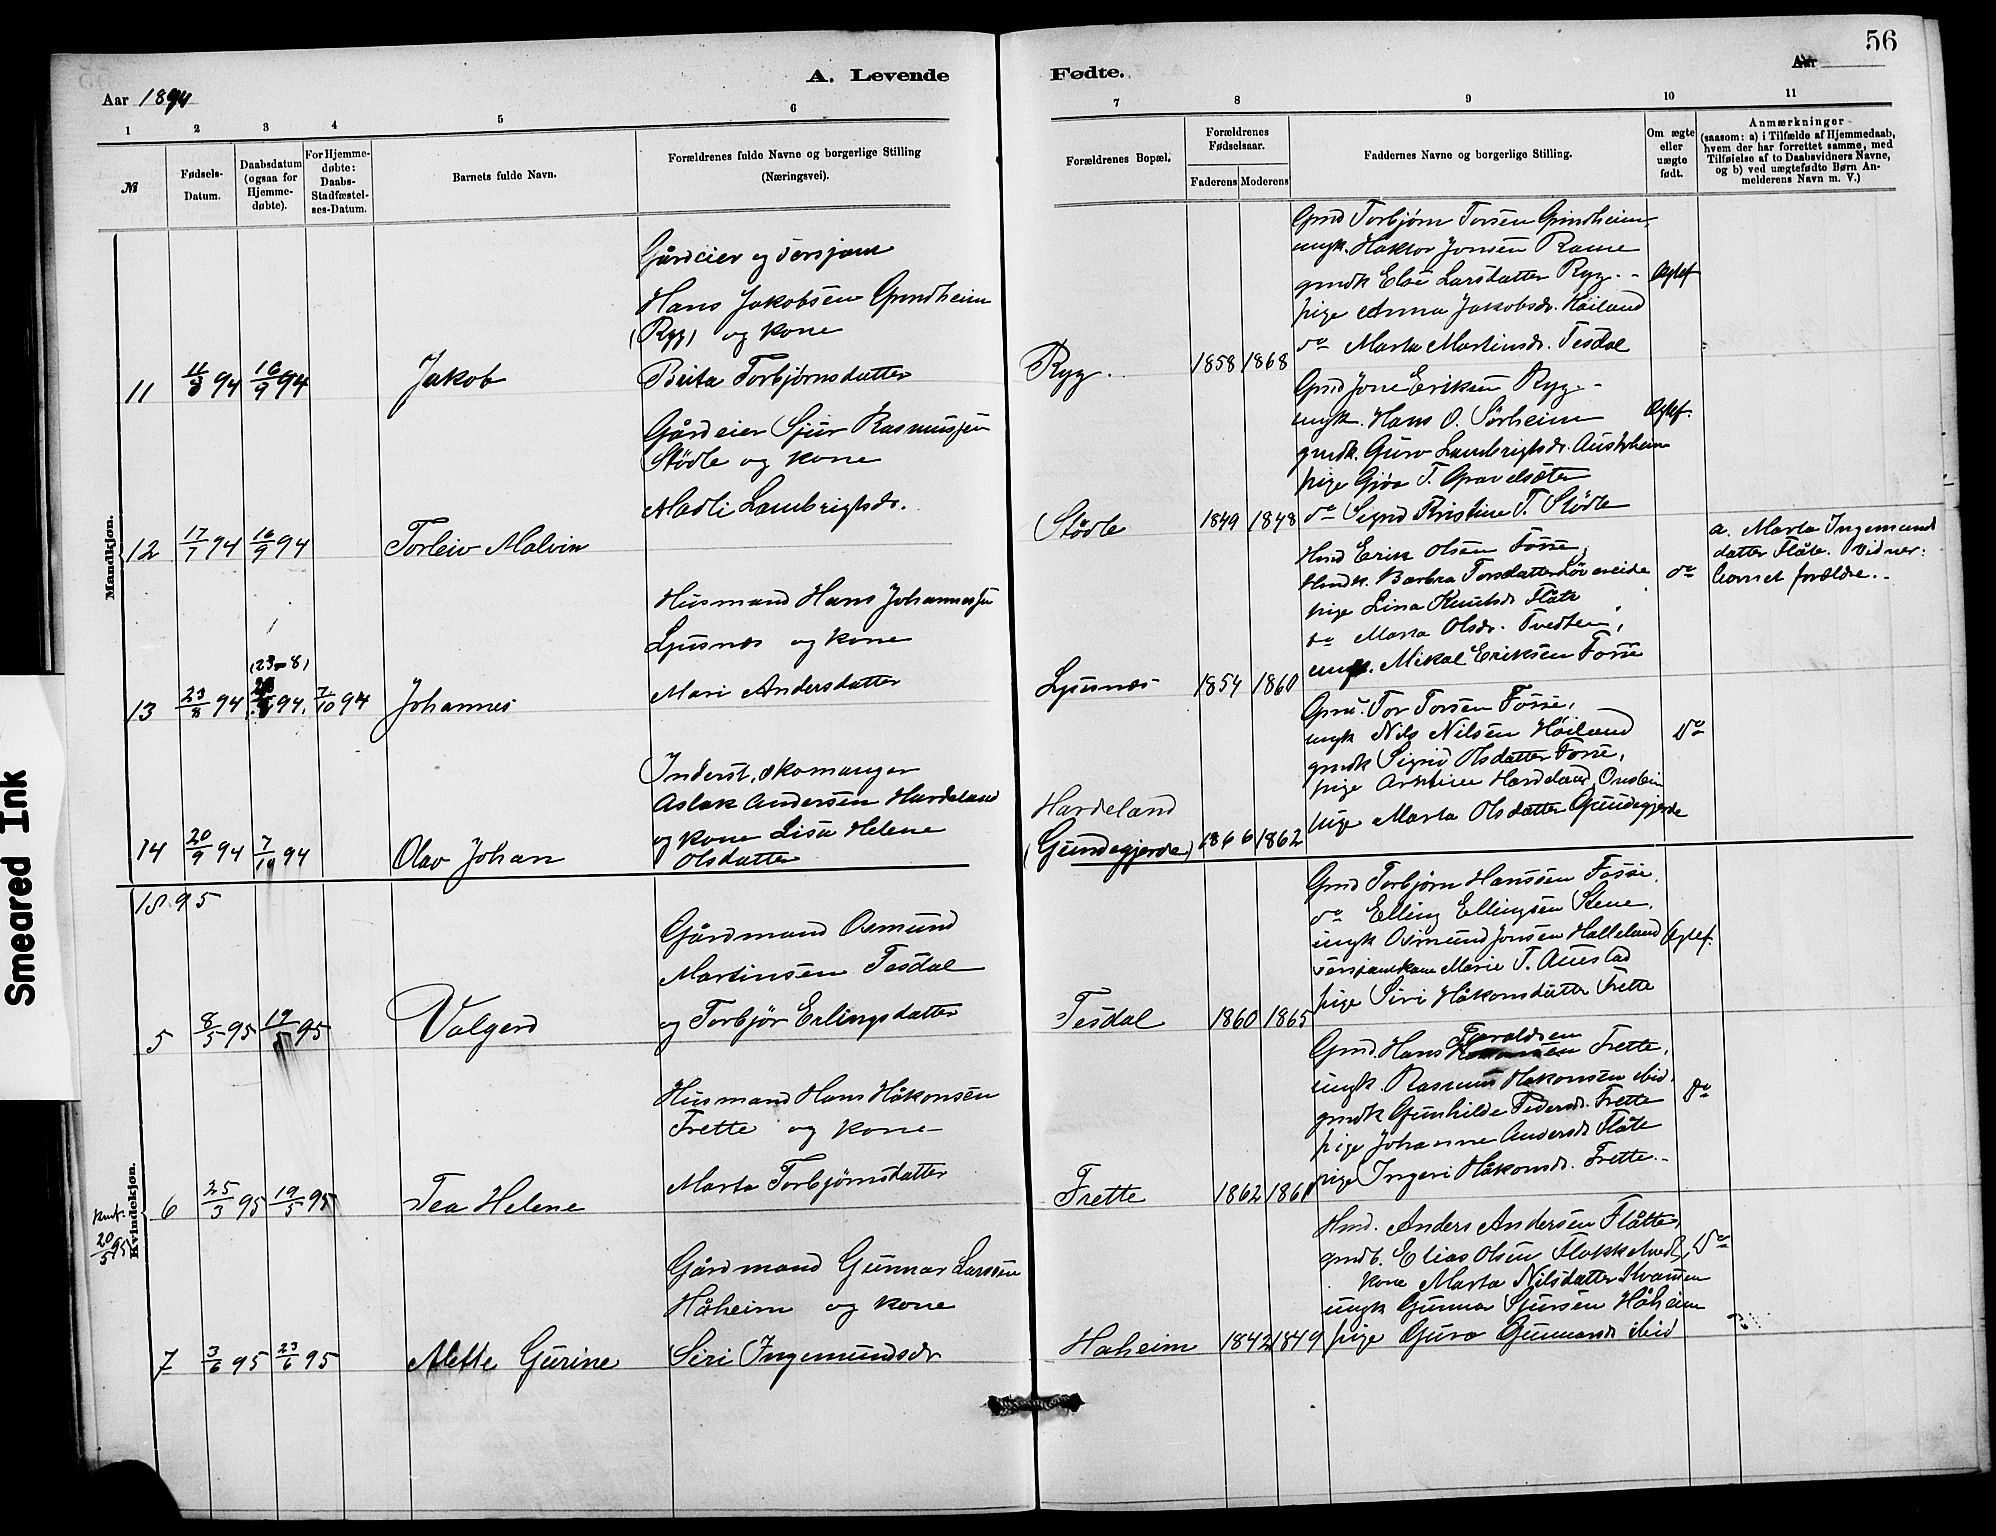 56
A. Levende
Fødte.
Aar 1894
Aar
1
2
3
4
5
6
7
8
9
10
11
№
Fødsels-
Datum.
Daabsdatum
(ogsaa for
Hjemme-
døbte).
For Hjemme-
døbte:
Daabs-
Stadfæstel-
ses-Datum.
Barnets fulde Navn.
Forældrenes fulde Navne og borgerlige Stilling
(Næringsvei).
Forældrenes Bopæl.
Forældrenes
Fødselsaar.
Faderens
Moderens
Faddernes Navne og borgerlige Stilling.
Om ægte
eller
uægte
født.
Anmærkninger
(saasom: a) i Tilfælde af Hjemmedaab,
hvem der har forrettet samme, med
Tilføielse af to Daabsvidners Navne,
og b) ved uægtefødte Børn An-
melderens Navn m. V.)
Mandkjøn.
11
94
16/9 94
Jakob
Gårdeier og
Hans Jakobsen Grindheim
(Ryg) og kone
Brita Torbjørnsdatter
Ryg.
1858
1868
Gmd Torbjørn Torsen Grindheim,
ungk. Jonsen Rame
gmdk Eloi Larsdatter Ryg. -
pige Anna Jakobsdr. Høiland
do Marta Martinsdr. Tesdal
Ægtef
12
17/7 94
16/9 94
Torleiv Malvin
Gårdeier Sjur Rasmussen
Stødle og kone
Madli Lambrigtsdr.
Stødle
1849
1848
Gmd Jone Eriksen Ryg -
ungk. Hans O. Sørheim
gmdk. Guro Lambrigtsdr. Austrheim
pige Gjøa T. Gravelsæter
do Sigrid Kristine T. Stødle
Ægtef.
13
23/8 94
(23-8)
94.
7/10 94
Johannes
Husmand Hans Johannessen
Ljusnes og kone
Mari Andersdatter
Ljusnes
1854
1860
Hmd Erik Olsen Fosse,
Hmdk. Barbra Torsdatter Løvareide
pige Lina Knutsdr Flåte
do Marta Olsdr. Tvedten,
ungk. Mikal Eriksen Fosse
do
a. Marta Ingemund
datter Flåte. Vidner:
barnet forældre. -
14
20/9 94
7/10 94
Olav Johan
Inderst, skomager
Aslak Andersen Hardeland
og kone Lisa Helene
Olsdatter
Hardeland
(Gundegjerde)
1866
1862
Gmd. Tor Torsen Fosse,
ungk Nils Nilsen Høiland
gmdk Sigrid Olsdatter Fosse,
pige Hardeland,
pige Marta Olsdatter Gundegjerde
Do
1895
Kvindekjøn.
5
8/5 95
19/5 95
Valgerd
Gårdmand Osmund
Martinsen Tesdal
og Torbjør Erlingsdatter
Tesdal
1860
1865
Gmd Torbjørn Hanssen Fosse.
do Elling Ellingsen Stene.
ungk Osmund Jonsen Halleland
Marie T. Austad
pige Siri Håkonsdatter Frette
Ægtef.
6
25/3 95
19/5 95
Tea Helene
Husmand Hans Håkonsen
Frette og kone
Marta Torbjørnsdatter
Frette
1862
1861
Gmd. Hans Tjeraldsen Frette,
ungk. Rasmus Håkonsen ibid.
gmdk Gunhilde Pedersdr. Frette
pige Johanne Andersdr Flåte
pige Ingeri Håkonsdr. Frette. -
Do
20/5 95
7
3/6 95
23/6 95
Alette Gurine
Gårdmand Gunnar Larssen
Håheim og kone
Siri Ingemundsdr
Haheim
1842
1849
Hmd. Anders Andersen Flåtte,
gmdb. Elias Olsen
kone Marta Nilsdatter Kvamen
ungk Gunnar Sjursen Håheim
pige Guro Gunnarsdr ibid
Do
Smeared Ink